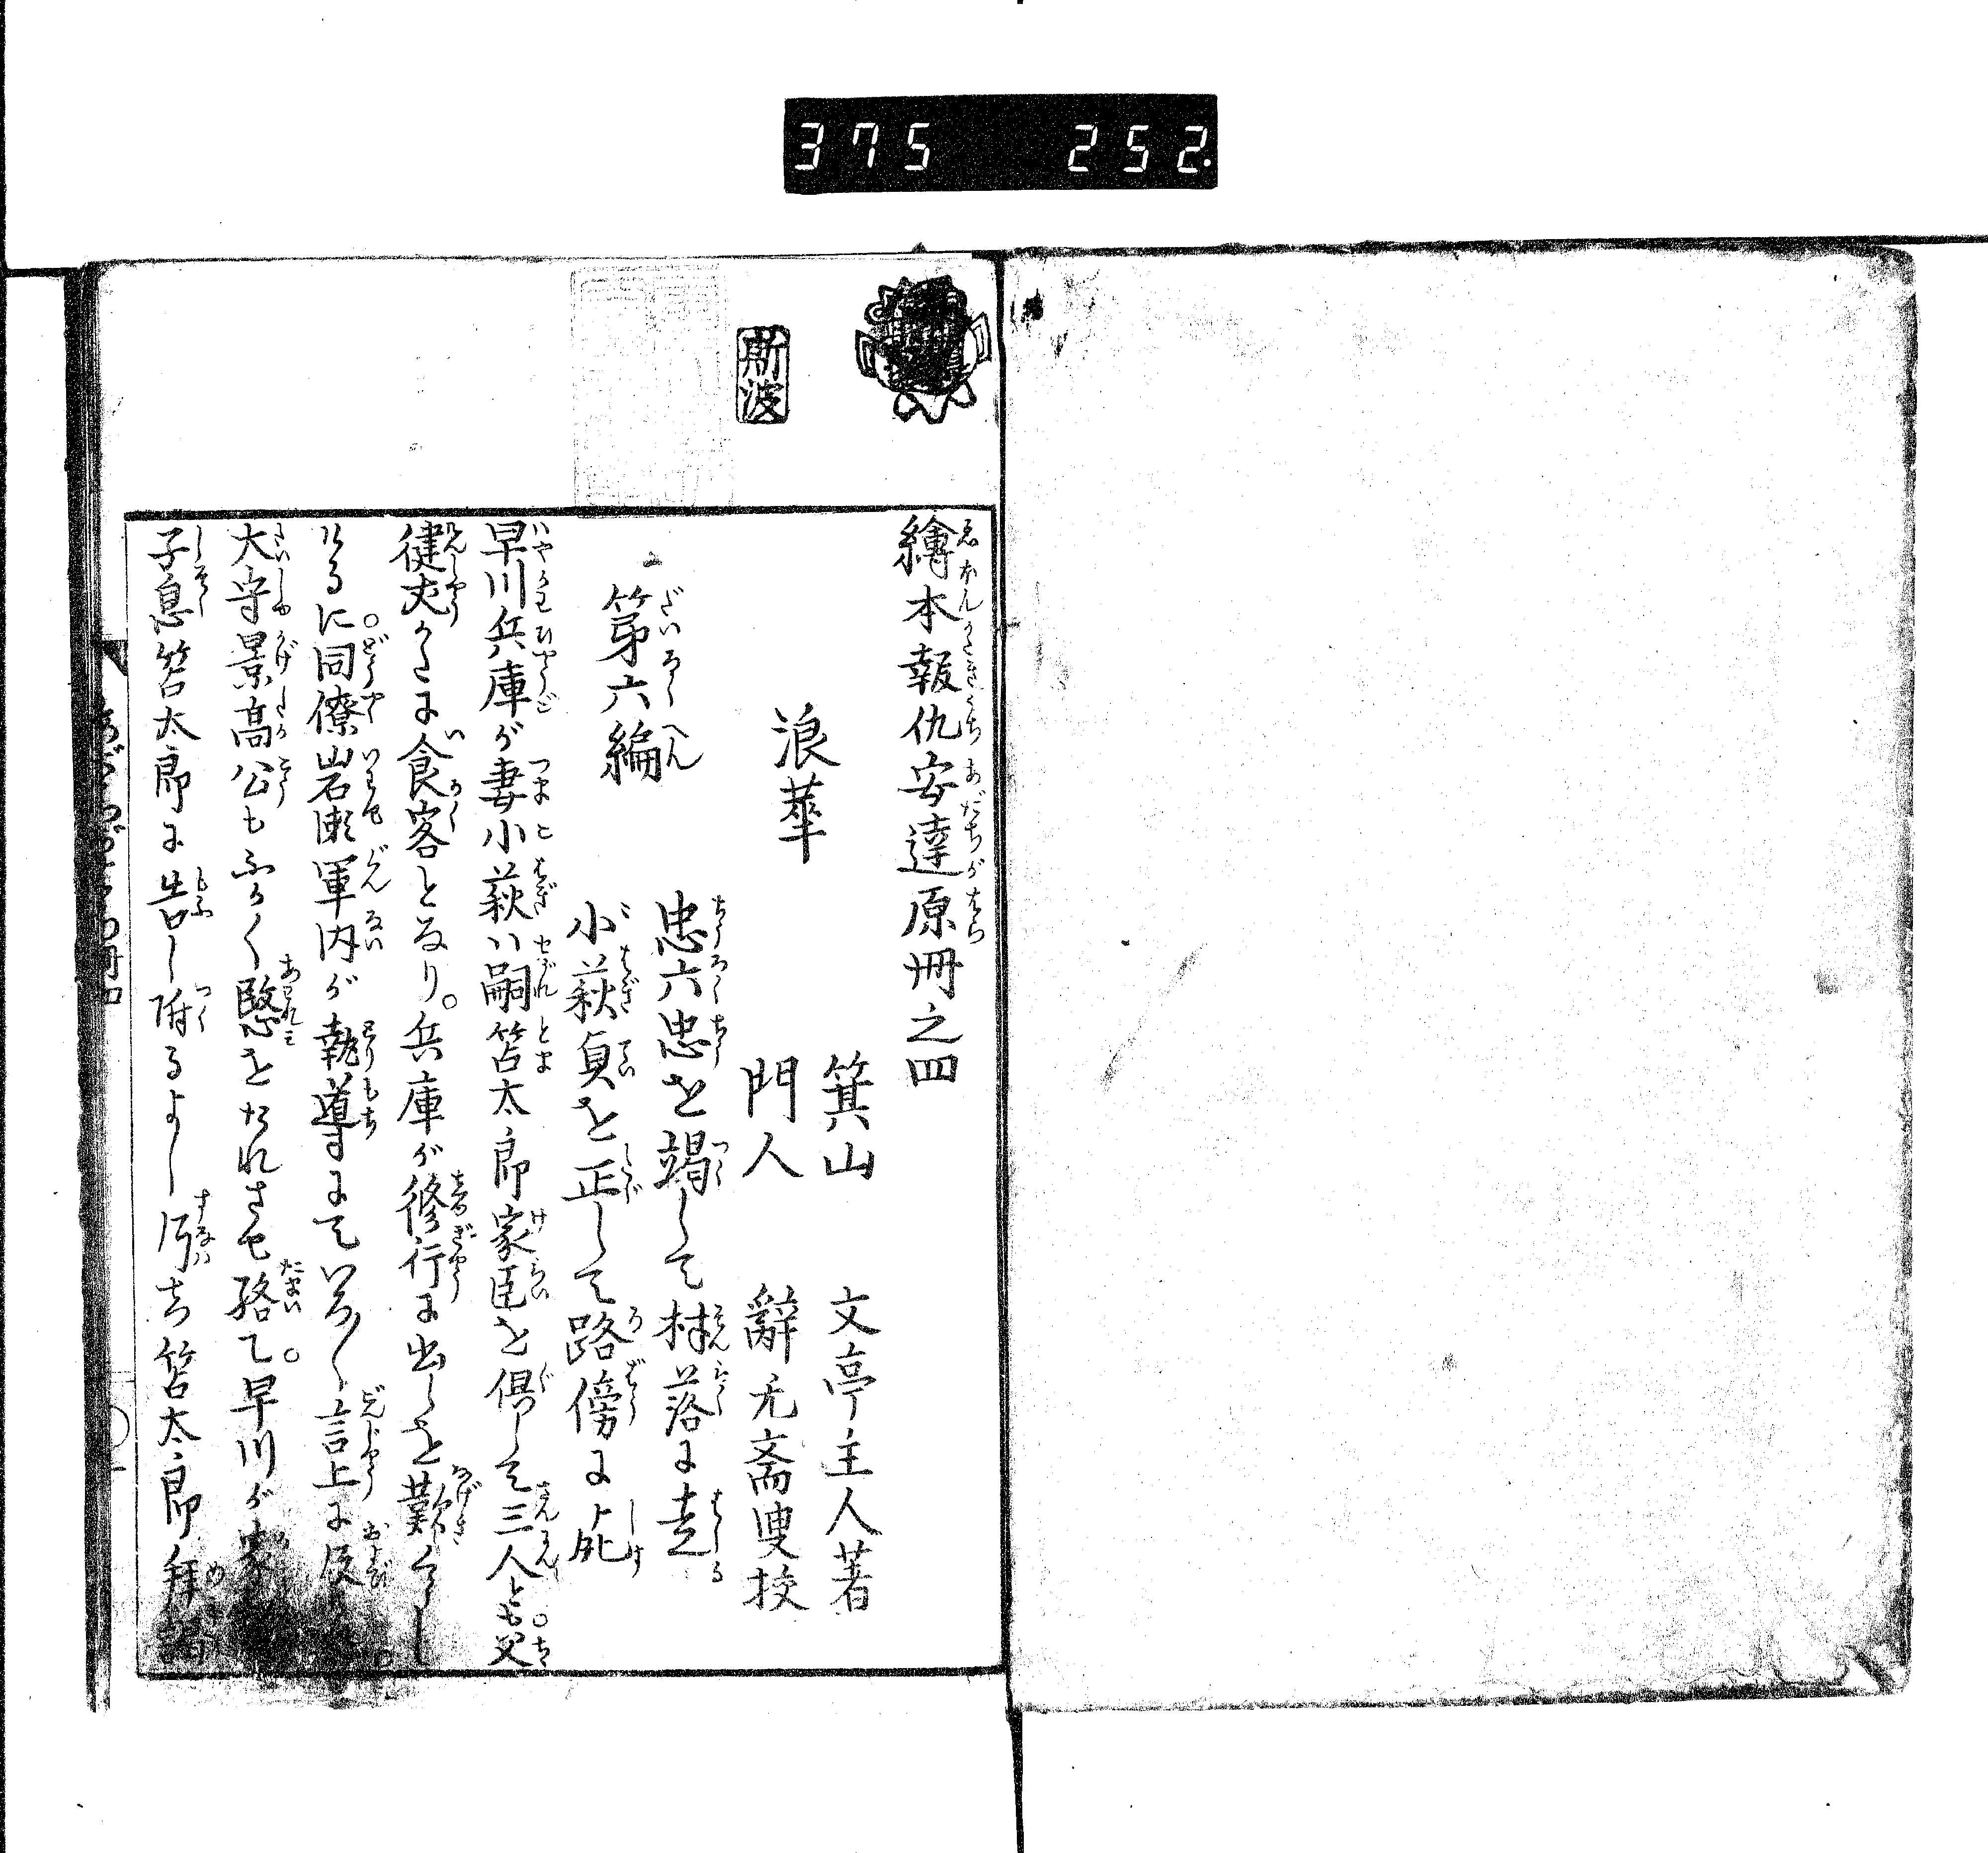 375 252.
斯波
繪本報仇安達原冊之四
浪華 箕山 文亭主人著
門人 辭无斎叟挍
第六編 忠六忠を竭して村落に走
小萩貞を正して路傍に死
早川兵庫が妻小萩ハ嗣笘太郎家臣を倶して三人とも父
健夫かたに食客となり。兵庫が修行に出しを歎くらし
ける に。同僚岩瀬軍内が執導にていろ〳〵言上に及
大守景高公もふかく愍をたれさせ給て。早川が家
子息笘太郎に告し附るよし 笘太郎拜謁